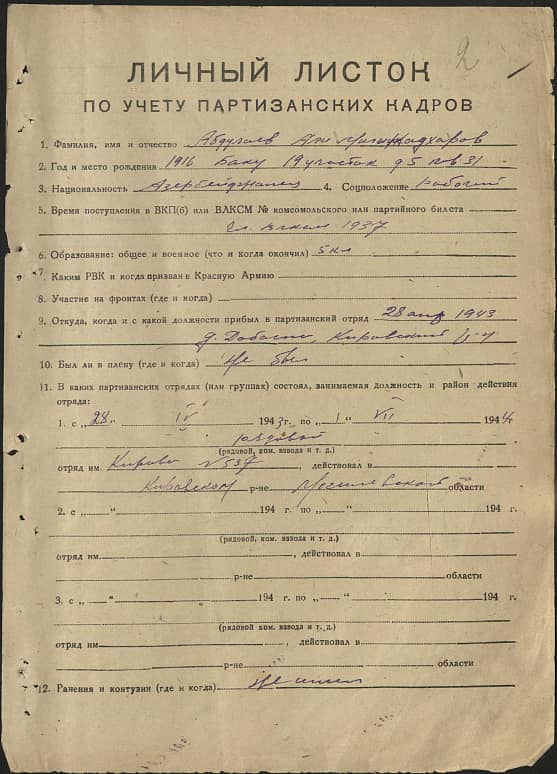 2
ЛИЧНЫЙ ЛИСТОК
ПО УЧЕТУ ПАРТИЗАНСКИХ КАДРОВ
1. Фамилия, имя и отчество Абдулаев
2. Год и место рождения 1916 Баку 19 участок д 5 кв 31
3. Национальность Азербейджанец 4. Соцположение рабочий
5. Время поступления в ВКП(б) или ВЛКСМ № комсомольского или партийного билета
Чл. ВЛКСМ 1937
6. Образование: общее и военное (что и когда окончил) 5 кл
7. Каким РВК и когда призван в Красную Армию
8. Участие на фронтах (где и когда)
9. Откуда, когда и с какой должности прибыл в партизанский отряд 28 апр 1943
д. Добосна, Кировский р-н
10. Был ли в плену (где и когда) не был
11. В каких партизанских отрядах (или группах) состоял, занимаемая должность и район действия
отряда:
1. с „28" IV 1943 г. по „1" VII 1944 г.
рядовой
(рядовой, ком. взвода и т. д.)
отряд им. Кирова № 537, действовал в
Кировском р-не Могилевской области
2. с „ " 194 г. по „ " 194 г.
(рядовой, ком. взвода и т. д.)
отряд им. , действовал в
р-не области
3. с „ " 194 г. по „ " 194 г.
(рядовой, ком. взвода и т. д.)
отряд им. , действовал в
р-не области
12. Ранения и контузии (где и когда) не имел